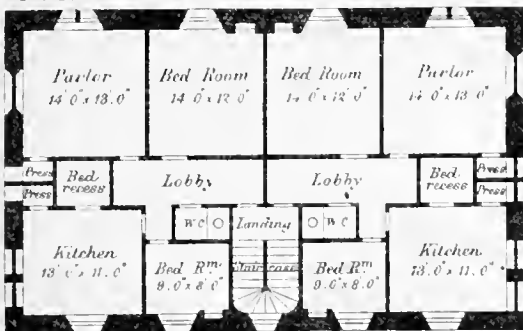 Parlor
14'.0" x 13'.0"
Bed Room
14'.0" x 12'.0"
Bed Room
14'.0" x 12'.0"
Parlor
14'.0" x 13'.0"
Press
Press
Bed
recess
Lobby
Lobby
Bed
recess
Press
Press
W C
Landing
W C
Kitchen
13'.0" x 11.0"
Bed Rm
9.0" x 8'.0"
Staircase
Bed Rm
9.0" x 8.0"
Kitchen
13'.0" x 11.0"